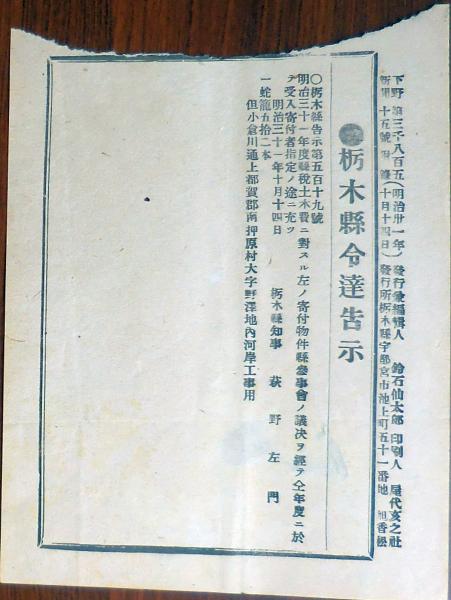 下野新聞 第三千八百五十五號附錄 (明治卅一年十月十四日) 發行兼編輯人 鈴石仙太郎 印刷人 屋代亥之社
發行所栃木縣宇都宮市池上町五十一番地 旭香松
栃木縣令達告示
〇栃木縣告示第五百十九號
明治三十一年度縣稅土木費ニ對スル左ノ寄付物件縣參事會ノ議决ヲ經テ仝年度ニ於
テ受入寄付者指定ノ途ニ充ツ
明治三十一年十月十四日
栃木縣知事 萩野左門
一蛇籠五拾二本
但小倉川通上都賀郡南押原村大字野澤地內河岸工事用